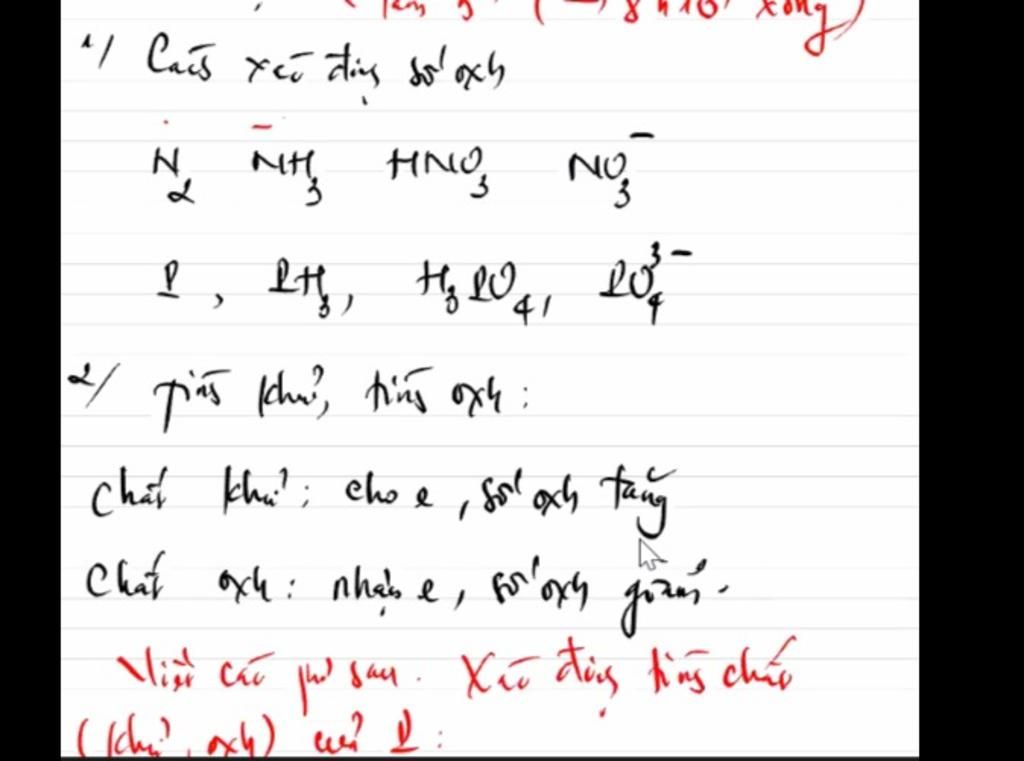 (làm 5' (→ 8h10' xong)
1/ Cách xác định số oxh
N2 NH3 HNO3 NO3⁻
P, PH3, H3PO4, PO4³⁻
2/ Tính khử, tính oxh:
Chất khử: cho e, số oxh tăng
Chất oxh: nhận e, số oxh giảm.
Viết các pứ sau. Xác định tính chất
(khử, oxh) của P: